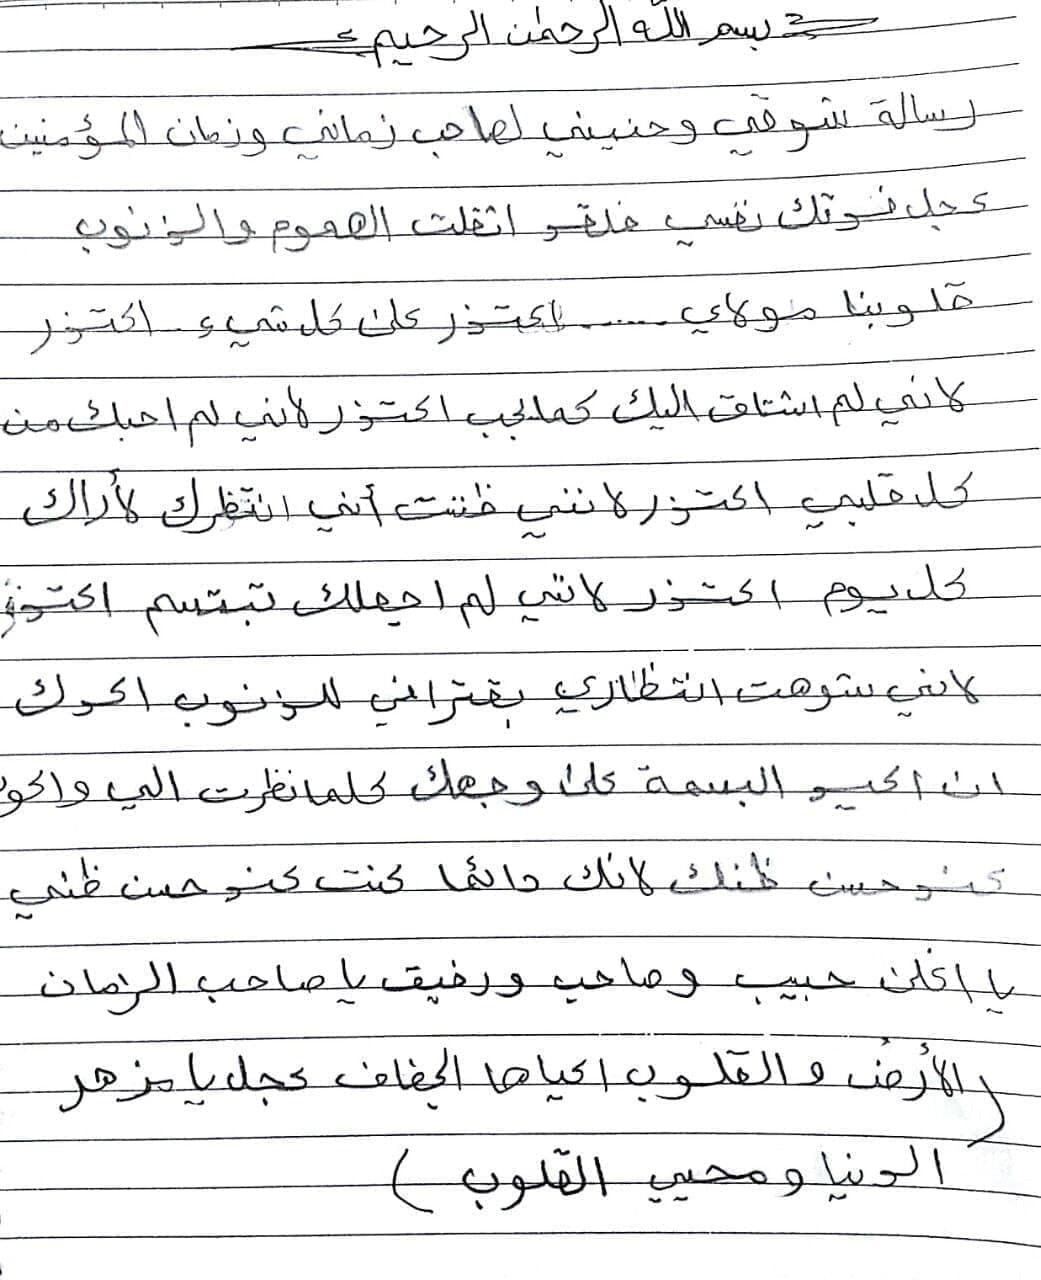 بسم الله الرحمٰن الرحيم
رسالة شوقي وحنيني لصاحب زماني وزمان المؤمنين
عجل فوتك نفسي فلقد اثقلت الهموم والذنوب
قلوبنا مولاي ...... اعتذر على كل شيء . اعتذر
لانني لم اشتاق اليك كما يجب اعتذر لأنني لم احبك من
كل قلبي اعتذر لانني ظننت أنني انتظرك لأراك
كل يوم اعتذر لانني لم اجعلك تبتسم اعتذر
لانني شوهت انتظاري بقترافي للذنوب اعدك
ان اعيد البسمة على وجهك كلما نظرت الي واكون
عند حسن ظنك لانك دائما كنت عند حسن ظني
يا اغلى حبيب وصاحب ورفيق يا صاحب الزمان
(الأرضُ والقلوب احياها الجفاف عجل يا مزهر
الدنيا ومحيي القلوب)